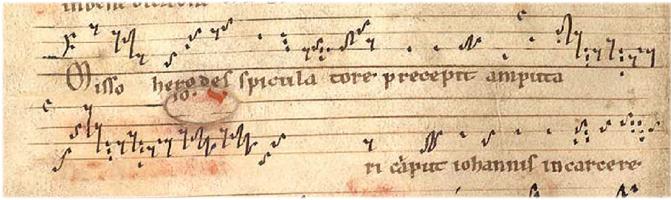 Misso herodes spicula tore precepit amputa
ri caput iohannis in carcere